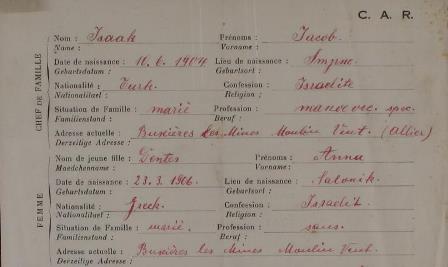 C. A. R.
Nom : Isaak Prénoms : Jacob.
Name : Vorname :
Date de naissance : 10.6.1904 Lieu de naissance : Smyrne.
Geburtsdatum : Geburtsort :
Nationalité : Turk. Confession : Israelite
Nationalitaet : Religion :
Situation de Famille : marié Profession : manoeuv. spec.
Familienstand : Beruf :
Adresse actuelle : Buxières les Mines Moulin Vent. (Allier)
Derzeitige Adresse :
CHEF DE FAMILLE
Nom de jeune fille : Prénoms : Anna
Maedchenname : Vorname :
Date de naissance : 23.3.1906. Lieu de naissance : Salonik.
Geburtsdatum : Geburtsort :
Nationalité : Greek. Confession : Israelit
Nationalitaet : Religion :
Situation de Famille : marié. Profession : sans.
Familienstand : Beruf :
Adresse actuelle : Buxières les Mines Moulin Vent.
Derzeitige Adresse :
FEMME